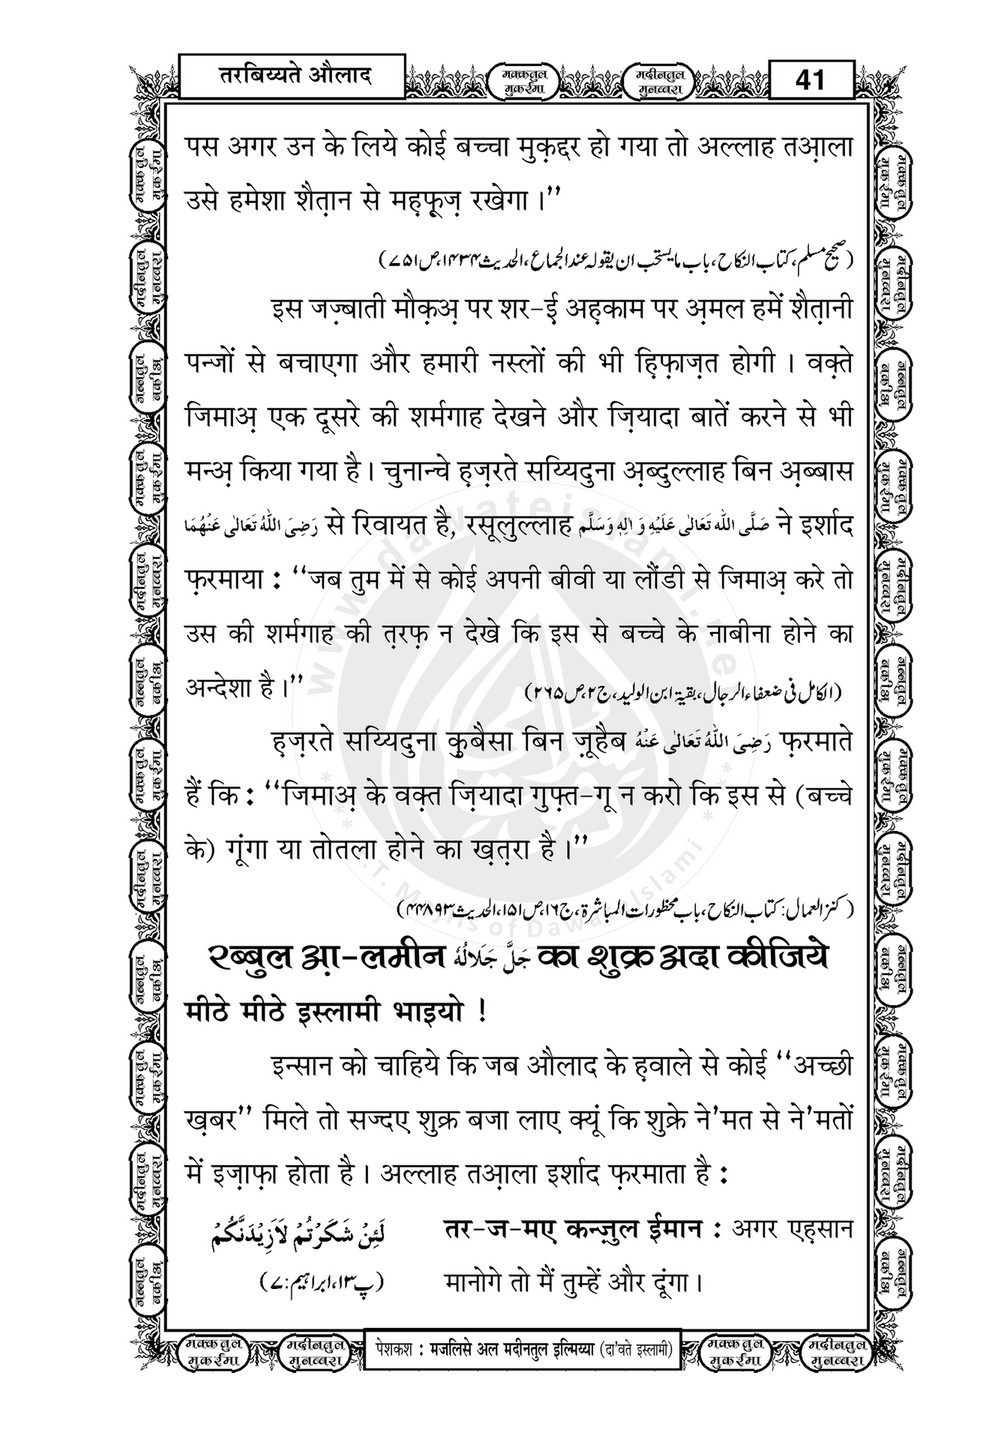 तरबिय्यते औलाद
मक्कतुल मुकर्रमा
मदीनतुल मुनव्वरा
41
पस अगर उन के लिये कोई बच्चा मुक़द्दर हो गया तो अल्लाह तआ़ला
उसे हमेशा शैत़ान से मह़फ़ूज़ रखेगा ।"
(صحیح مسلم، کتاب النکاح، باب مایستحب ان یقولہ عند الجماع، الحدیث ۱۴۳۴، ص ۷۵۱)
इस जज़्बाती मौक़अ़ पर शर-ई़ अह़काम पर अ़मल हमें शैत़ानी
पन्जों से बचाएगा और हमारी नस्लों की भी ह़िफ़ाज़त होगी । वक़्ते
जिमाअ़ एक दूसरे की शर्मगाह देखने और ज़ियादा बातें करने से भी
मन्अ़ किया गया है । चुनान्चे ह़ज़रते सय्यिदुना अ़ब्दुल्लाह बिन अ़ब्बास
رَضِیَ اللّٰہُ تَعَالٰی عَنْہُمَا से रिवायत है, रसूलुल्लाह صَلَّی اللّٰہ تَعَالٰی عَلَیْہِ وَ اٰلِہٖ وَسَلَّم ने इर्शाद
फ़रमाया : "जब तुम में से कोई अपनी बीवी या लौंडी से जिमाअ़ करे तो
उस की शर्मगाह की त़रफ़ न देखे कि इस से बच्चे के नाबीना होने का
अन्देशा है ।"
(الکامل فی ضعفاء الرجال، بقیۃ ابن الولید، ج۲، ص ۲۶۵)
ह़ज़रते सय्यिदुना क़ुबैसा बिन ज़ूहैब رَضِیَ اللّٰہُ تَعَالٰی عَنْہُ फ़रमाते
हैं कि : "जिमाअ़ के वक़्त ज़ियादा गुफ़्त-गू न करो कि इस से (बच्चे
के) गूंगा या तोतला होने का ख़त़रा है ।"
(کنز العمال: کتاب النکاح، باب محظورات المباشرۃ، ج۱۶، ص ۱۵۱، الحدیث ۴۴۸۹۳)
रब्बुल आ़-लमीन جَلَّ جَلَالُہٗ का शुक्र अदा कीजिये
मीठे मीठे इस्लामी भाइयो !
इन्सान को चाहिये कि जब औलाद के ह़वाले से कोई "अच्छी
ख़बर" मिले तो सज्दए शुक्र बजा लाए क्यूं कि शुक्रे ने'मत से ने'मतों
में इज़ाफ़ा होता है । अल्लाह तआ़ला इर्शाद फ़रमाता है :
لَئِنْ شَکَرْتُمْ لَاَزِیْدَنَّکُمْ
(پ۱۳، ابراہیم: ۷)
तर-ज-मए कन्ज़ुल ईमान : अगर एह़सान
मानोगे तो मैं तुम्हें और दूंगा ।
मक्कतुल मुकर्रमा
मदीनतुल मुनव्वरा
पेशकश : मजलिसे अल मदीनतुल इल्मिय्या (दा'वते इस्लामी)
मक्कतुल मुकर्रमा
मदीनतुल मुनव्वरा